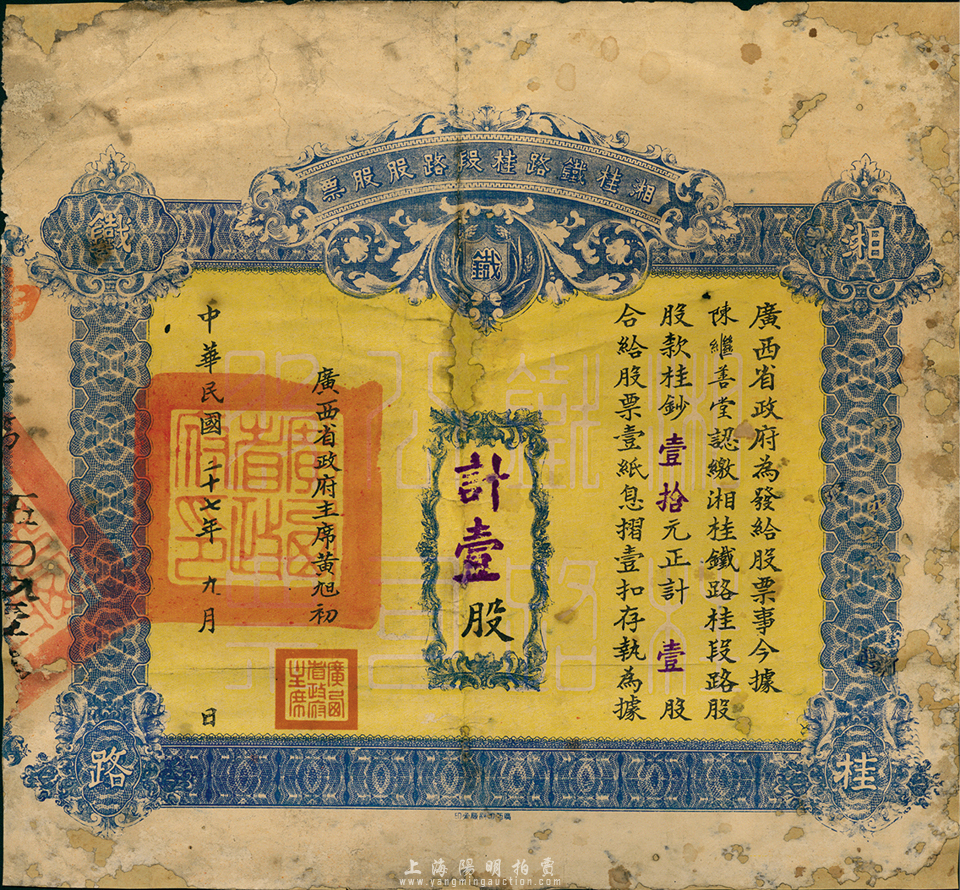 湘桂鐵路桂段路股股票
湘
桂
鐵
路
鐵
廣西省政府為發給股票事今據
陳繼善堂認繳湘桂鐵路桂段路股
股款桂鈔壹拾元正計壹股
合給股票壹紙息摺壹扣存執為據
計壹股
廣西省政府主席黃旭初
中華民國二十七年九月日
廣西省政府印
廣西省政府主席
上海陽明拍賣
www.yangmingauction.com